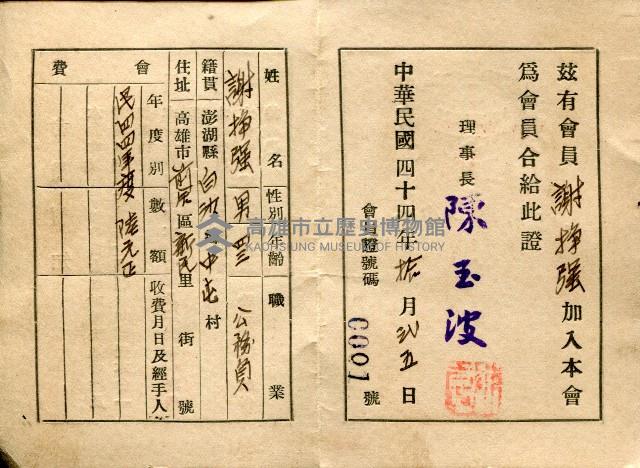 茲有會員謝掙强加入本會
爲會員合給此證
理事長 陳玉波
中華民國四十四年拾月弐五日
會員證號碼 0001 號
姓名 性別 年齡 職業
謝掙强 男 公務員
籍貫 澎湖縣白沙鄉中屯村
住址 高雄市前金區新民里 街 號
會費
年度別 數額 收費月日及經手人
民四四年度 陸元正
高雄市立歷史博物館
KAOHSIUNG MUSEUM OF HISTORY